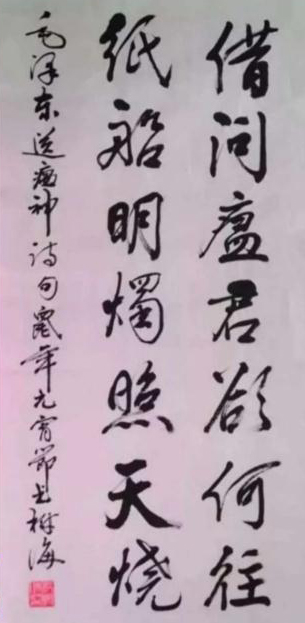 借问瘟君欲何往
纸船明燭照天烧
毛泽东送瘟神诗句鼠年元宵节书海